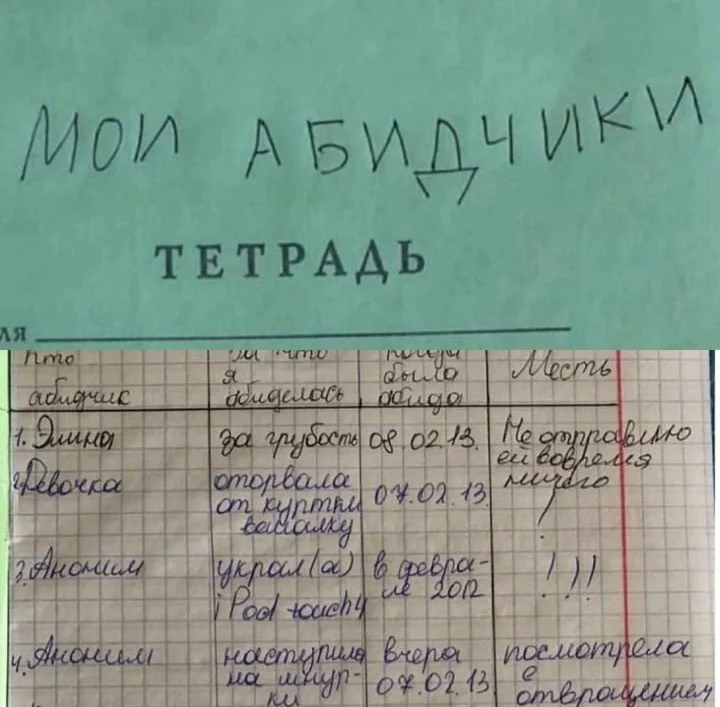 МОИ АБИДЧИКИ
ТЕТРАДЬ
ля
Кто
абидчик
За что
я
абиделась
Когда
была
абида
Месть
1. Элина
за грубость
08.02.13.
Не отправлю
ей вовремя
ничего
2. Девочка
оторвала
от куртки
вашалку
07.02.13
!
3. Аноним
украл(а)
i Pod touchy
в февра-
ле 2012
!!!
4. Аноним
наступила
на шнур-
ки
вчера
07.02.13
посмотрела
с
отвращением